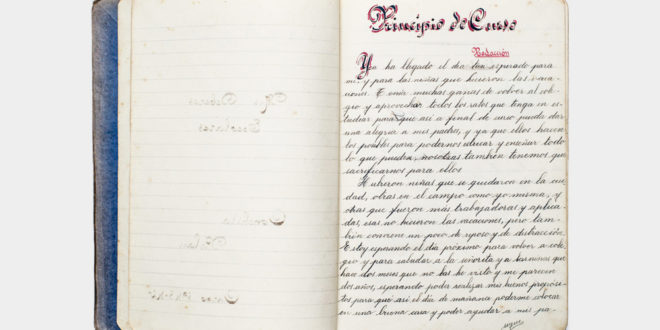 Principio de Curso
Redacción
Ya ha llegado el día tan esperado para
mí y para las niñas que hicieron las vaca-
ciones. Tenía muchas ganas de volver al cole-
gio y aprovechar todos los ratos que tenga en es-
tudiar para que así a final de curso pueda dar
una alegría a mis padres, y ya que ellos hacen
los posibles para podernos educar y enseñar todo
lo que puedan, nosotras también tenemos que
sacrificarnos para ellos.
Hubieron niñas que se quedaron en la ciu-
dad, otras en el campo como yo misma, y
otras que fueron más trabajadoras y aplica-
das, esas no hicieron las vacaciones, pero tam-
bién conviene un poco de reposo y de distracción.
Estoy esperando el día próximo para volver a cole-
gio y para saludar a la señorita y a las niñas que
hace dos meses que no las he visto y me parecen
dos años, esperando poder realizar mis buenos propósi-
tos para que así el día de mañana poderme colocar
en una buena casa y poder ayudar a mis pa-
sigue